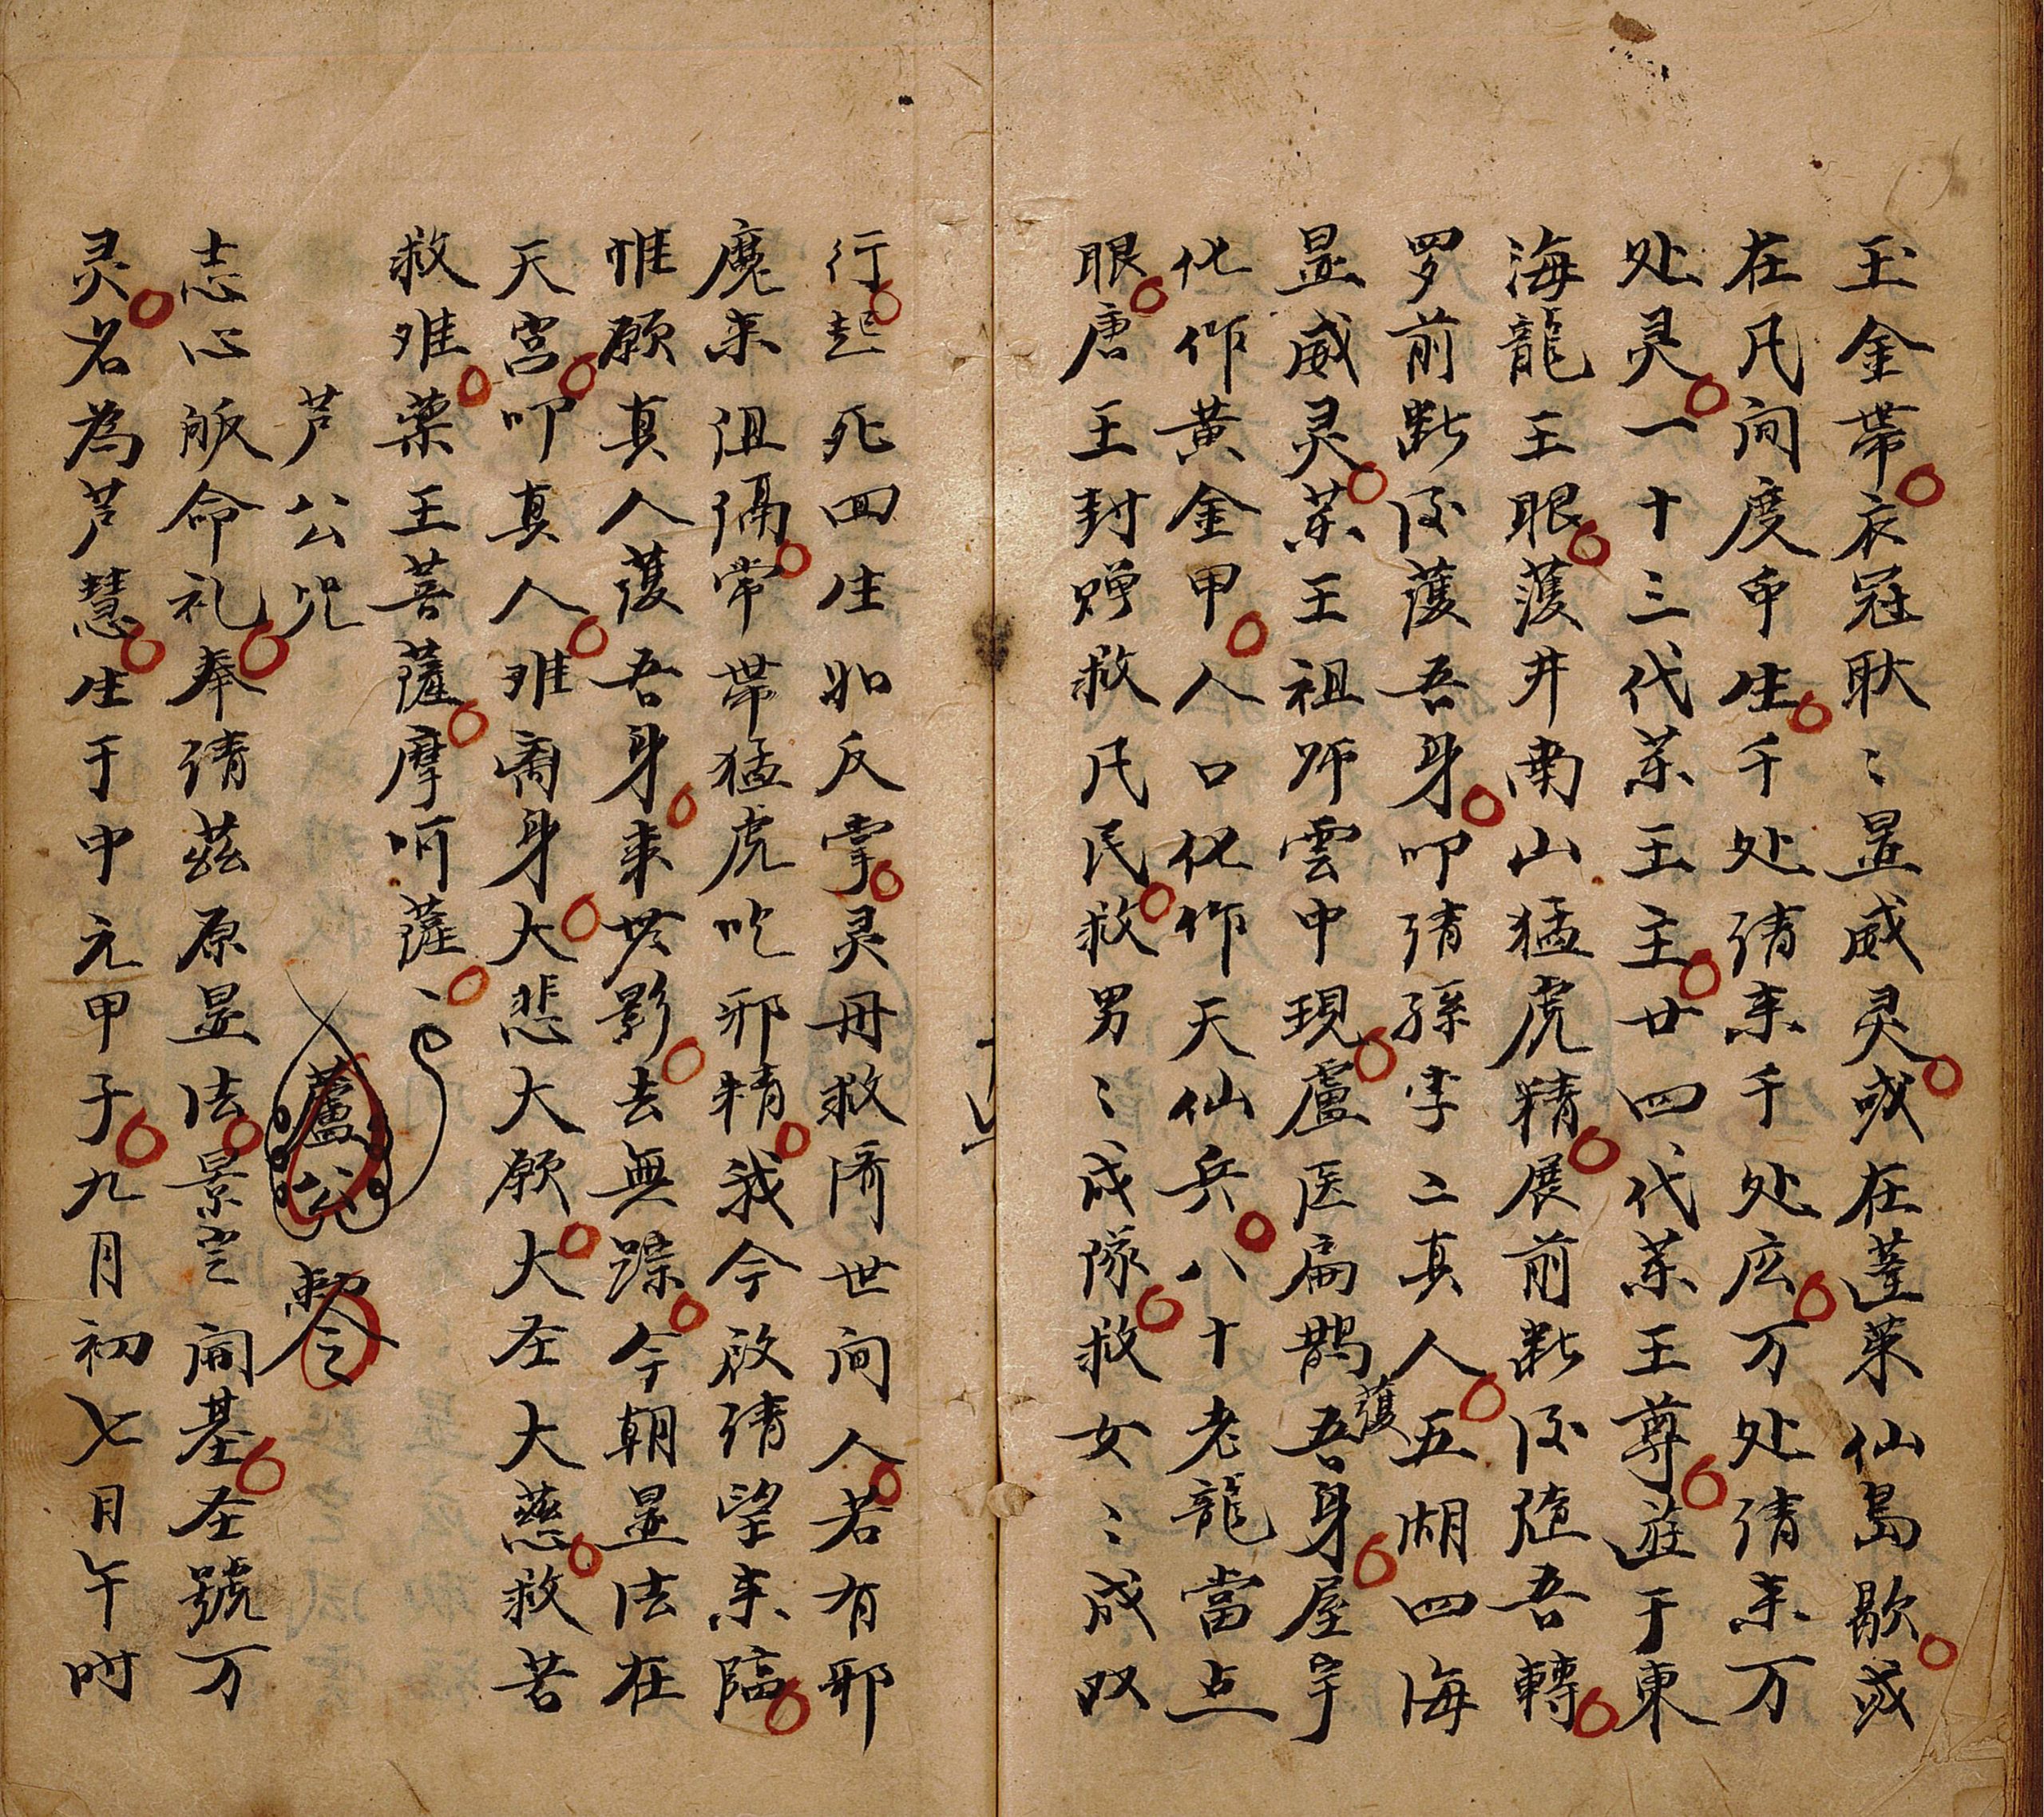 玉金帶衣冠耿〻显威灵或在蓬莱仙島歇或
在凡间度申生千处请来千处应万处请来万
处灵一十三代茶王主廿四代茶王尊遊于東
海龍王眼護井南山猛虎精展前断後随吾轉
罗前断後護吾身叩请孫李二真人五湖四海
显威灵茶王祖师雲中現盧医扁鵲護吾身屋宇
化作黄金甲人口化作天仙兵八十老龍當点
眼唐王封赠救凡民救男〻成隊救女〻成双
行起死回生如反掌灵丹救济世间人若有邪
魔来沮隔常带猛虎吃邪精我今啟请望来臨
惟願真人護吾身来無影去無踪今朝显法在
天宫叩真人难离身大悲大願大圣大慈救苦
救难藥王菩薩摩呵薩〻
芦公咒 蘆公 敕令
志心皈命礼奉请茲原显法景 開基圣號万
灵名為芦慧生于中元甲子九月初七月午时